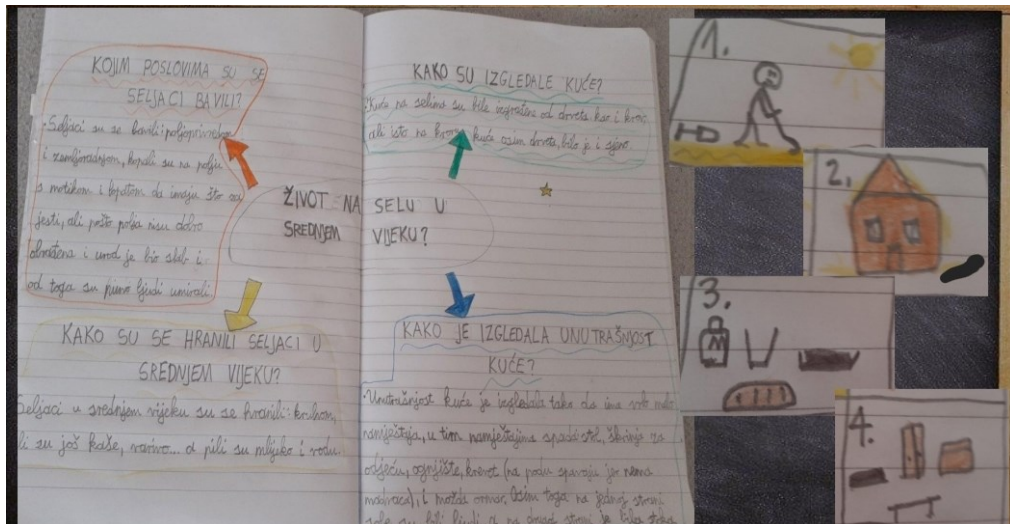 KOJIM POSLOVIMA SU SE
SELJACI BAVILI?
- Seljaci su se bavili poljoprivredom
i zemljoradnjom, kopali su na polju
s motikom i lopatom da imaju što za
jesti, ali pošto polja nisu dobro
obrađena i urod je bio slab i
od toga su puno ljudi umirali.
ŽIVOT NA SELU U
SREDNJEM VIJEKU?
KAKO SU SE HRANILI SELJACI U
SREDNJEM VIJEKU?
Seljaci u srednjem vijeku su se hranili: kruhom,
li su još kaše, varivo... a pili su mlijeko i vodu.
KAKO SU IZGLEDALE KUĆE?
Kuće na selima su bile izgrađene od drveta kao i krov,
ali isto na krovu kuće osim drveta, bilo je i sjeno.
KAKO JE IZGLEDALA UNUTRAŠNJOST
KUĆE?
- Unutrašnjost kuće je izgledala tako da ima vrlo malo
namještaja, u tim namještajima spada: stol, škrinja za
odjeću, ognjište, krevet (na podu spavaju jer nema
madraca), i možda ormar. Osim toga na jednoj strani
sobe su bili ljudi a na drugoj strani je bila
1.
2.
3.
M
4.